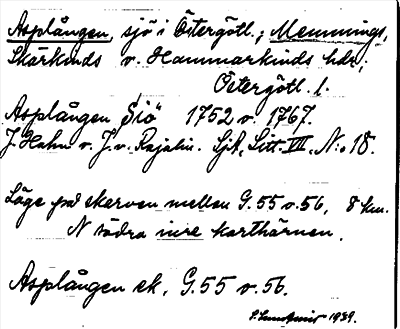 Asplången, sjö i Östergötl.; Memmings,
Skärkinds o. Hammarkinds hdn;
Östergötl. l.
Asplången Siö" 1752 o. 1767.
J. Hahn o. J. v. Rajalin. SjA, Litt. VII. N:o 18.
Läge på skarven mellan G.55 o. 56, 8 km.
N södra inre karthörnen.
Asplången ek. G.55 o. 56.
1939.